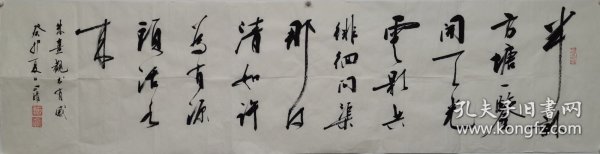 半亩
方塘一鉴
开天光
云影共
徘徊问渠
那得
清如许
为有源
头活水
来
朱熹观书有感
癸卯夏
孔夫子旧书网
www.kongfz.com